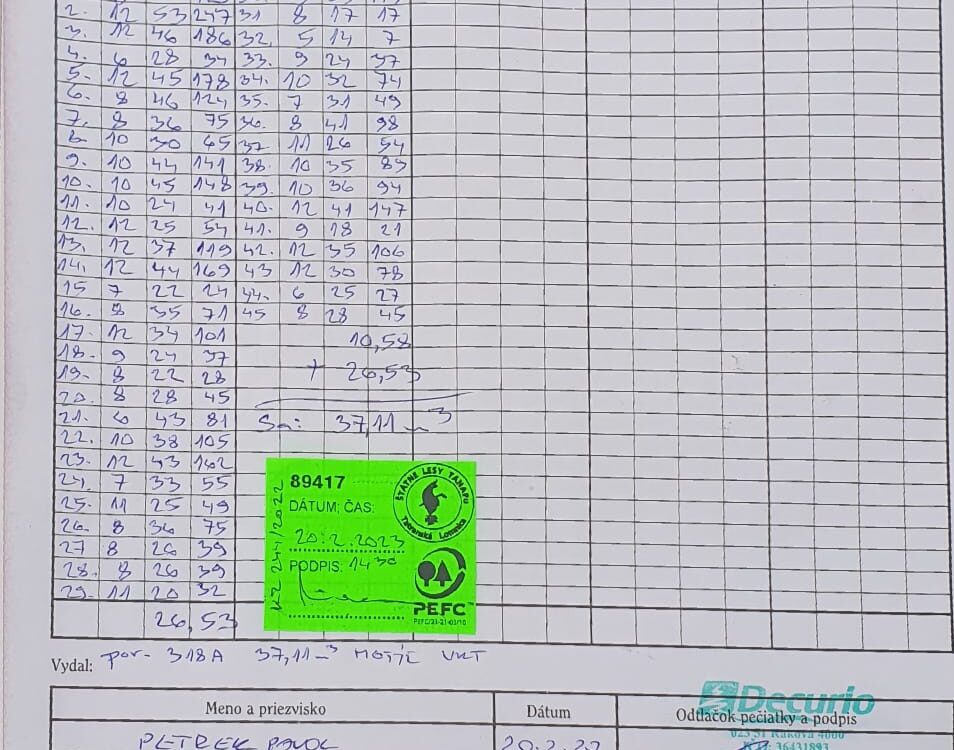 2. 12 53 247 31 8 17 17
3. 12 46 186 32. 5 14 7
4. 6 28 34 33. 9 24 37
5. 12 45 178 34. 10 32 74
6. 8 46 124 35. 7 31 49
7. 8 36 75 36. 8 41 98
8. 10 30 65 37 11 26 54
9. 10 44 141 38. 10 35 89
10. 10 45 148 39. 10 36 94
11. 10 24 41 40. 12 41 147
12. 12 25 54 41. 9 18 21
13. 12 37 119 42. 12 35 106
14. 12 44 169 43 12 30 78
15 7 22 24 44. 6 25 27
16. 8 35 71 45 8 28 45
17. 12 34 101 10,58
18. 9 24 37
19. 8 22 28 + 26,53
20. 8 28 45
21. 6 43 81 Sa: 37,11 m³
22. 10 38 105
23. 12 43 162
24. 7 33 55
25. 11 25 49
26. 8 36 75
27 8 26 39
28. 8 26 39
29. 11 20 32
26,53
89417
DÁTUM; ČAS:
20.2.2023
PODPIS: 14 30
KZ 244/2022
ŠTÁTNE LESY TANAPu
Tatranská Lomnica
PEFC™
PEFC/23-21-03/10
Vydal: por- 318A 37,11 m³ MOTÍC VKT
Meno a priezvisko Dátum Odtlačok pečiatky a podpis
Decurio
023 51 Raková 4000
36431893
PETREK PAVOL 20.2.23